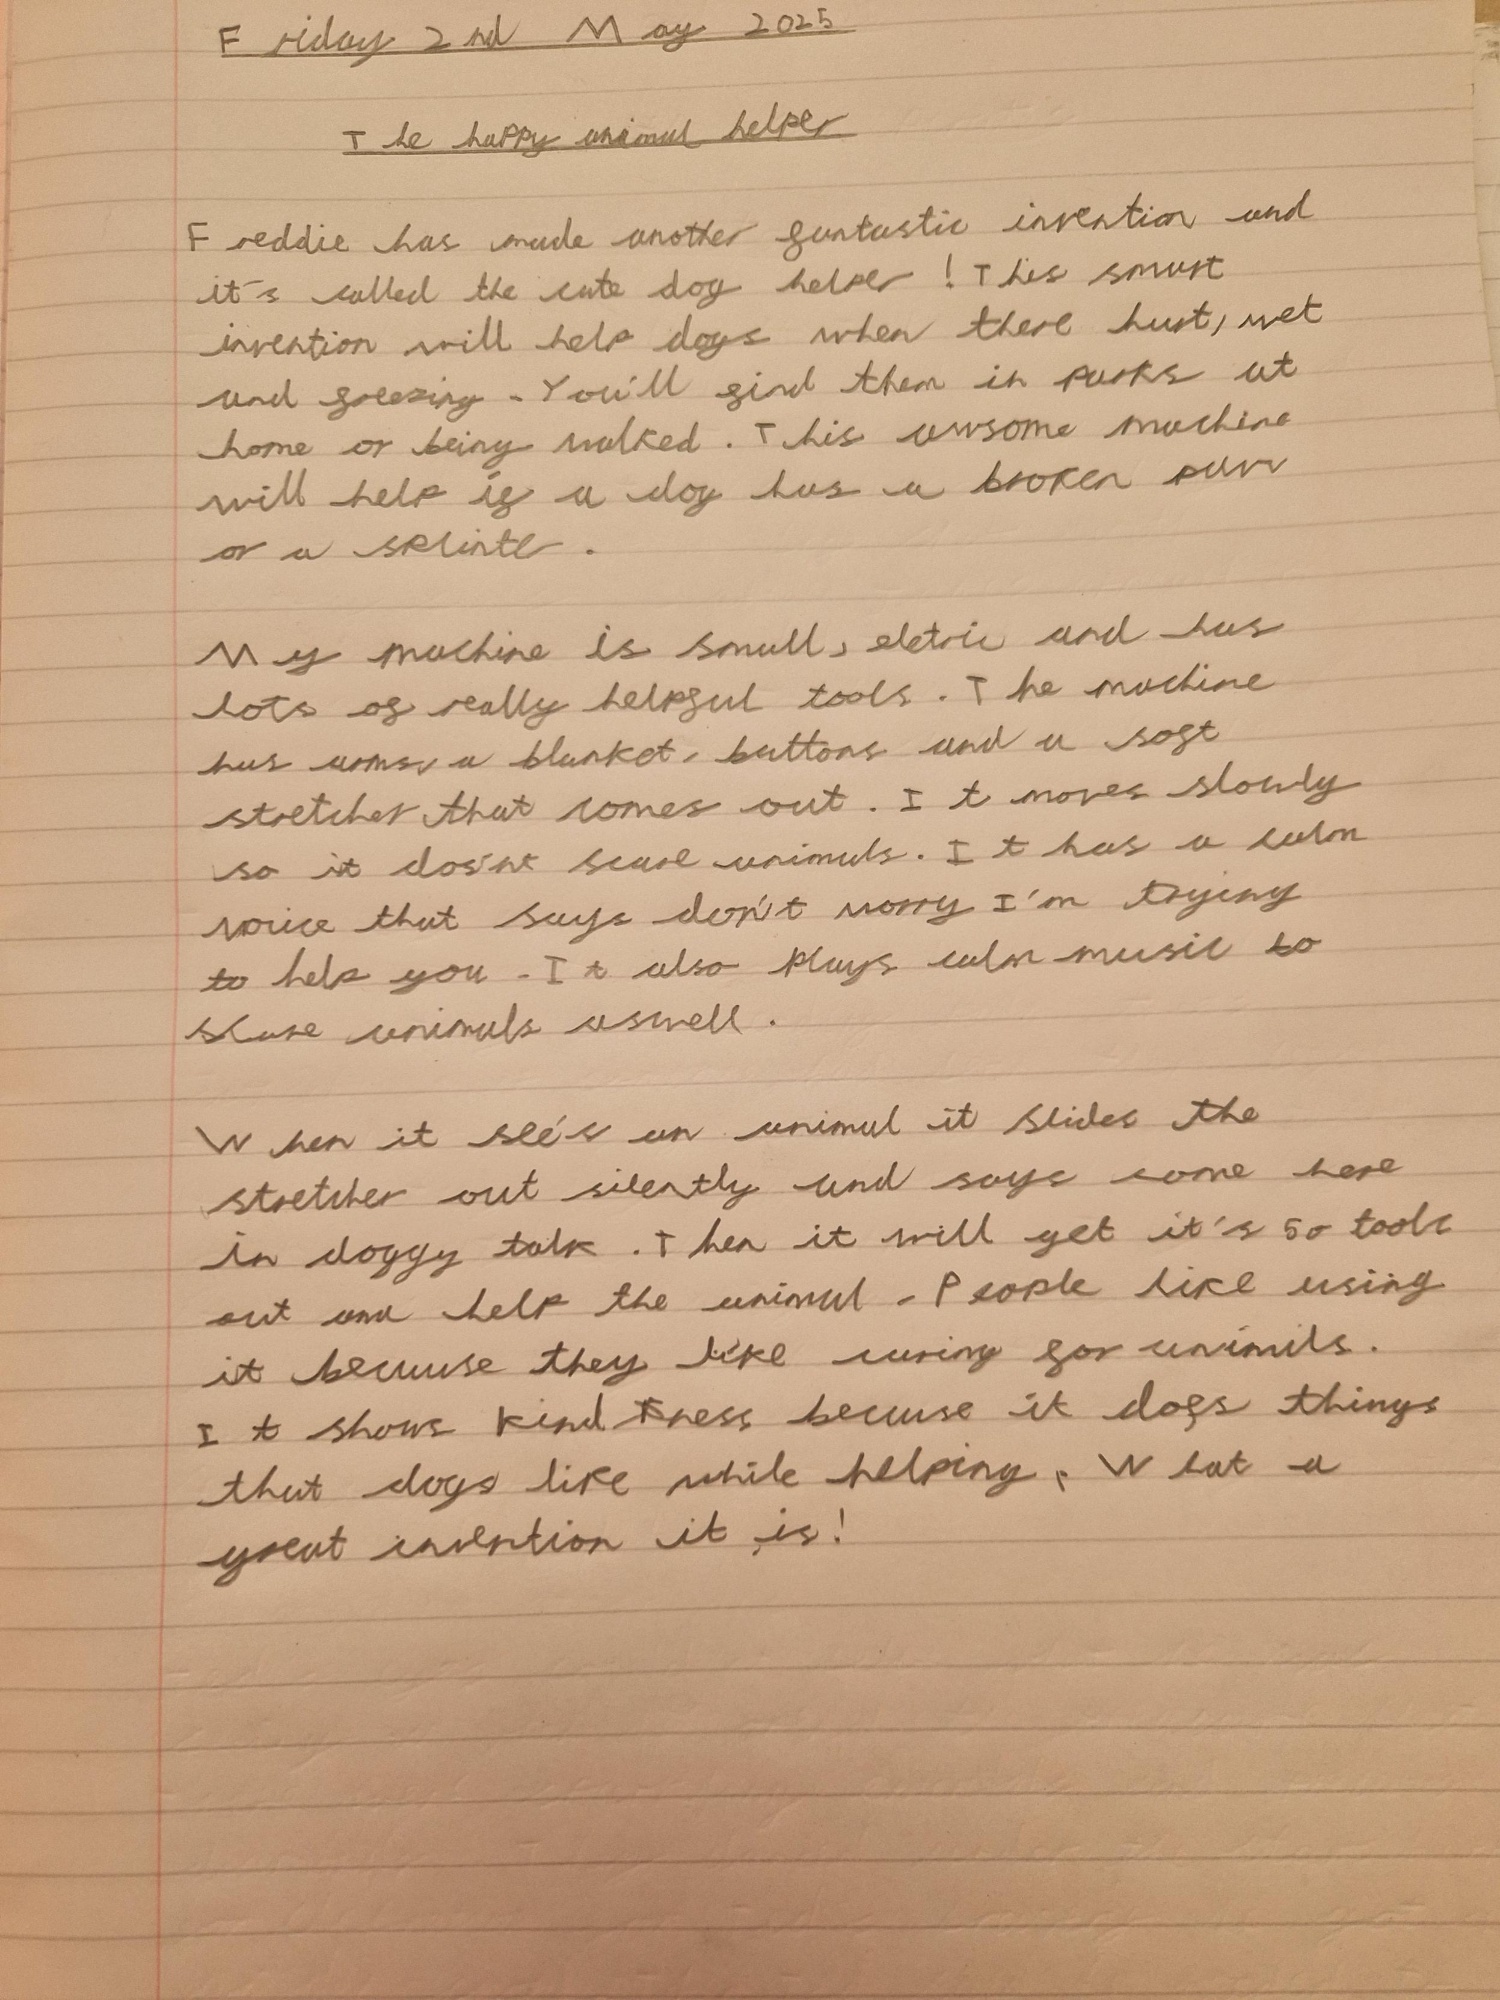 Friday 2nd May 2025
The happy animal helper
Freddie has made another fantastic invention and
it's called the cute dog helper! This smart
invention will help dogs when there hurt, wet
and freezing. You'll find them in parks at
home or being walked. This awsome machine
will help if a dog has a broken paw
or a splinte.
My machine is small, eletric and has
lots of really helpful tools. The machine
has arms, a blanket, buttons and a soft
stretcher that comes out. It moves slowly
so it dos'nt scare animals. It has a calm
voice that says don't worry I'm trying
to help you. It also plays calm music to
scare animals aswell.
When it see's an animal it slides the
stretcher out silently and says come here
in doggy talk. Then it will get it's 50 tools
out and help the animal. People like using
it because they like caring for animils.
It shows kind ness because it does things
that dogs like while helping. What a
great invention it is!